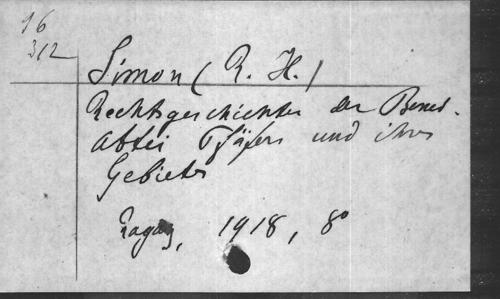 16
312
Simon (R. H.)
Rechtsgeschichte der Bened.
Abtei Pfäfers und ihres
Gebietes
Ragaz, 1918, 8°